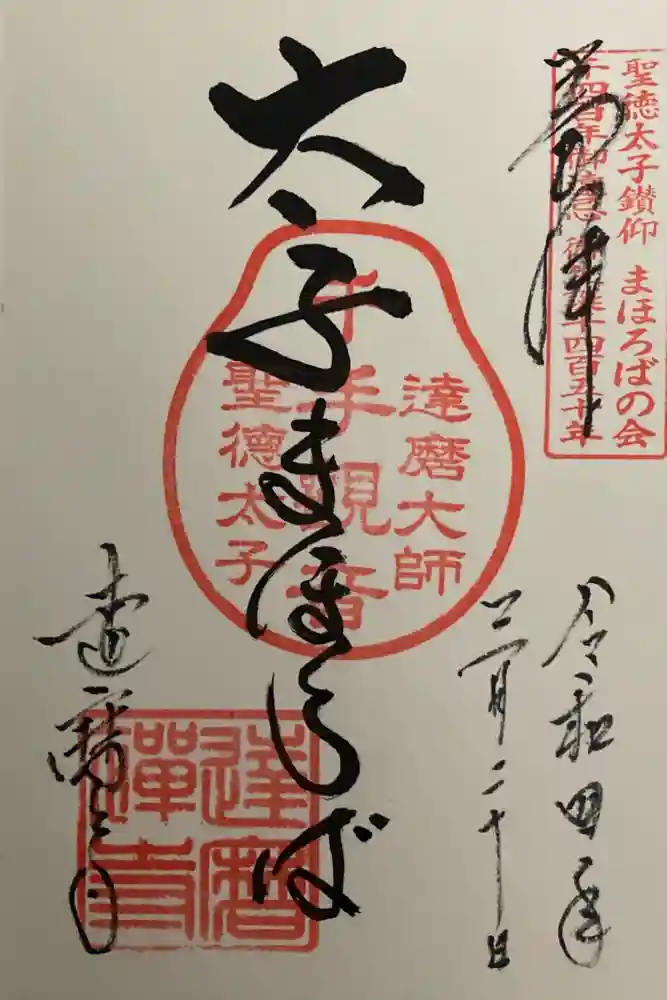 奉拝
聖徳太子鑽仰 まほろばの会
千四百年御遠忌 千四百五十年
令和四年
月二十日
太子まほろば
達磨大師
千手観音
聖徳太子
達磨寺
達磨
禅寺